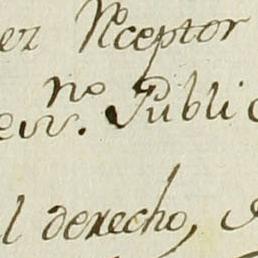 ez Rceptor
no
ev. Public
l derecho,